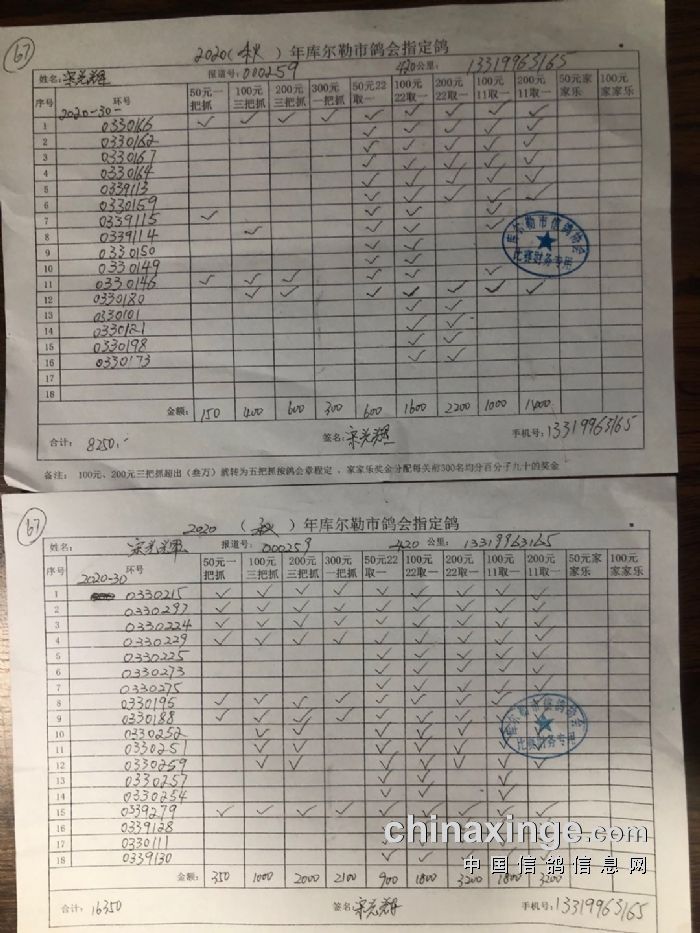 67
2020(秋)年库尔勒市鸽会指定鸽
姓名: 宋光辉 报道号: 000259 420公里: 13319963165
序号 环号 50元一把抓 100元三把抓 200元三把抓 300元一把抓 50元22取一 100元22取一 200元22取一 100元11取一 200元11取一 50元家家乐 100元家家乐
2020-30-
1 0330166 ✓ ✓ ✓ ✓ ✓ ✓ ✓ ✓ ✓
2 0330162 ✓ ✓ ✓ ✓ ✓
3 0330167 ✓ ✓ ✓ ✓ ✓
4 0330164 ✓ ✓ ✓ ✓ ✓
5 0339113 ✓ ✓ ✓ ✓ ✓
6 0330159 ✓ ✓ ✓ ✓ ✓
7 0339115 ✓ ✓ ✓ ✓
8 0339114 ✓ ✓ ✓ ✓
9 0330150 ✓ ✓
10 0330149 ✓ ✓ ✓
11 0330146 ✓ ✓ ✓ ✓ ✓
12 0330180 ✓ ✓ ✓ ✓ ✓ ✓ ✓
13 0330101 ✓ ✓
14 0330121 ✓ ✓
15 0330198 ✓ ✓
16 0330173 ✓ ✓
17
18
金额: 150 400 600 300 600 1600 2200 1000 1400
合计: 8250.- 签名: 宋光辉 手机号: 13319963165
备注: 100元、200元三把抓超出(叁万)就转为五把抓按鸽会章程定,家家乐奖金分配每关前300名均分百分子九十的奖金
库尔勒市信鸽协会
比赛财务专用
67
2020(秋)年库尔勒市鸽会指定鸽
姓名: 宋光辉 报道号: 000259 420公里: 13319963165
序号 环号 50元一把抓 100元三把抓 200元三把抓 300元一把抓 50元22取一 100元22取一 200元22取一 100元11取一 200元11取一 50元家家乐 100元家家乐
2020-30
1 0330215 ✓ ✓ ✓ ✓ ✓ ✓ ✓ ✓ ✓
2 0330297 ✓ ✓ ✓ ✓ ✓ ✓ ✓ ✓ ✓
3 0330224 ✓ ✓ ✓ ✓ ✓ ✓ ✓ ✓ ✓
4 0330229 ✓ ✓ ✓ ✓ ✓ ✓ ✓ ✓ ✓
5 0330225 ✓ ✓ ✓ ✓ ✓
6 0330273 ✓ ✓ ✓ ✓ ✓
7 0330275 ✓ ✓ ✓ ✓ ✓
8 0330195 ✓ ✓ ✓ ✓ ✓ ✓ ✓ ✓ ✓
9 0330188 ✓ ✓ ✓ ✓ ✓ ✓ ✓ ✓ ✓
10 0330252 ✓ ✓ ✓ ✓ ✓ ✓ ✓
11 0330251 ✓ ✓ ✓ ✓ ✓ ✓ ✓
12 0330259 ✓ ✓ ✓ ✓ ✓ ✓ ✓
13 0330257 ✓ ✓
14 0330254 ✓ ✓
15 0339279 ✓ ✓ ✓ ✓ ✓ ✓ ✓ ✓ ✓
16 0339128
17 0330111
18 0339130
金额: 350 1000 2000 2100 900 1800 3200 1800 3200
合计: 16350 签名: 宋光辉 手机号: 13319963165
库尔勒市信鸽协会
比赛财务专用
chinaxinge.com
中国信鸽信息网